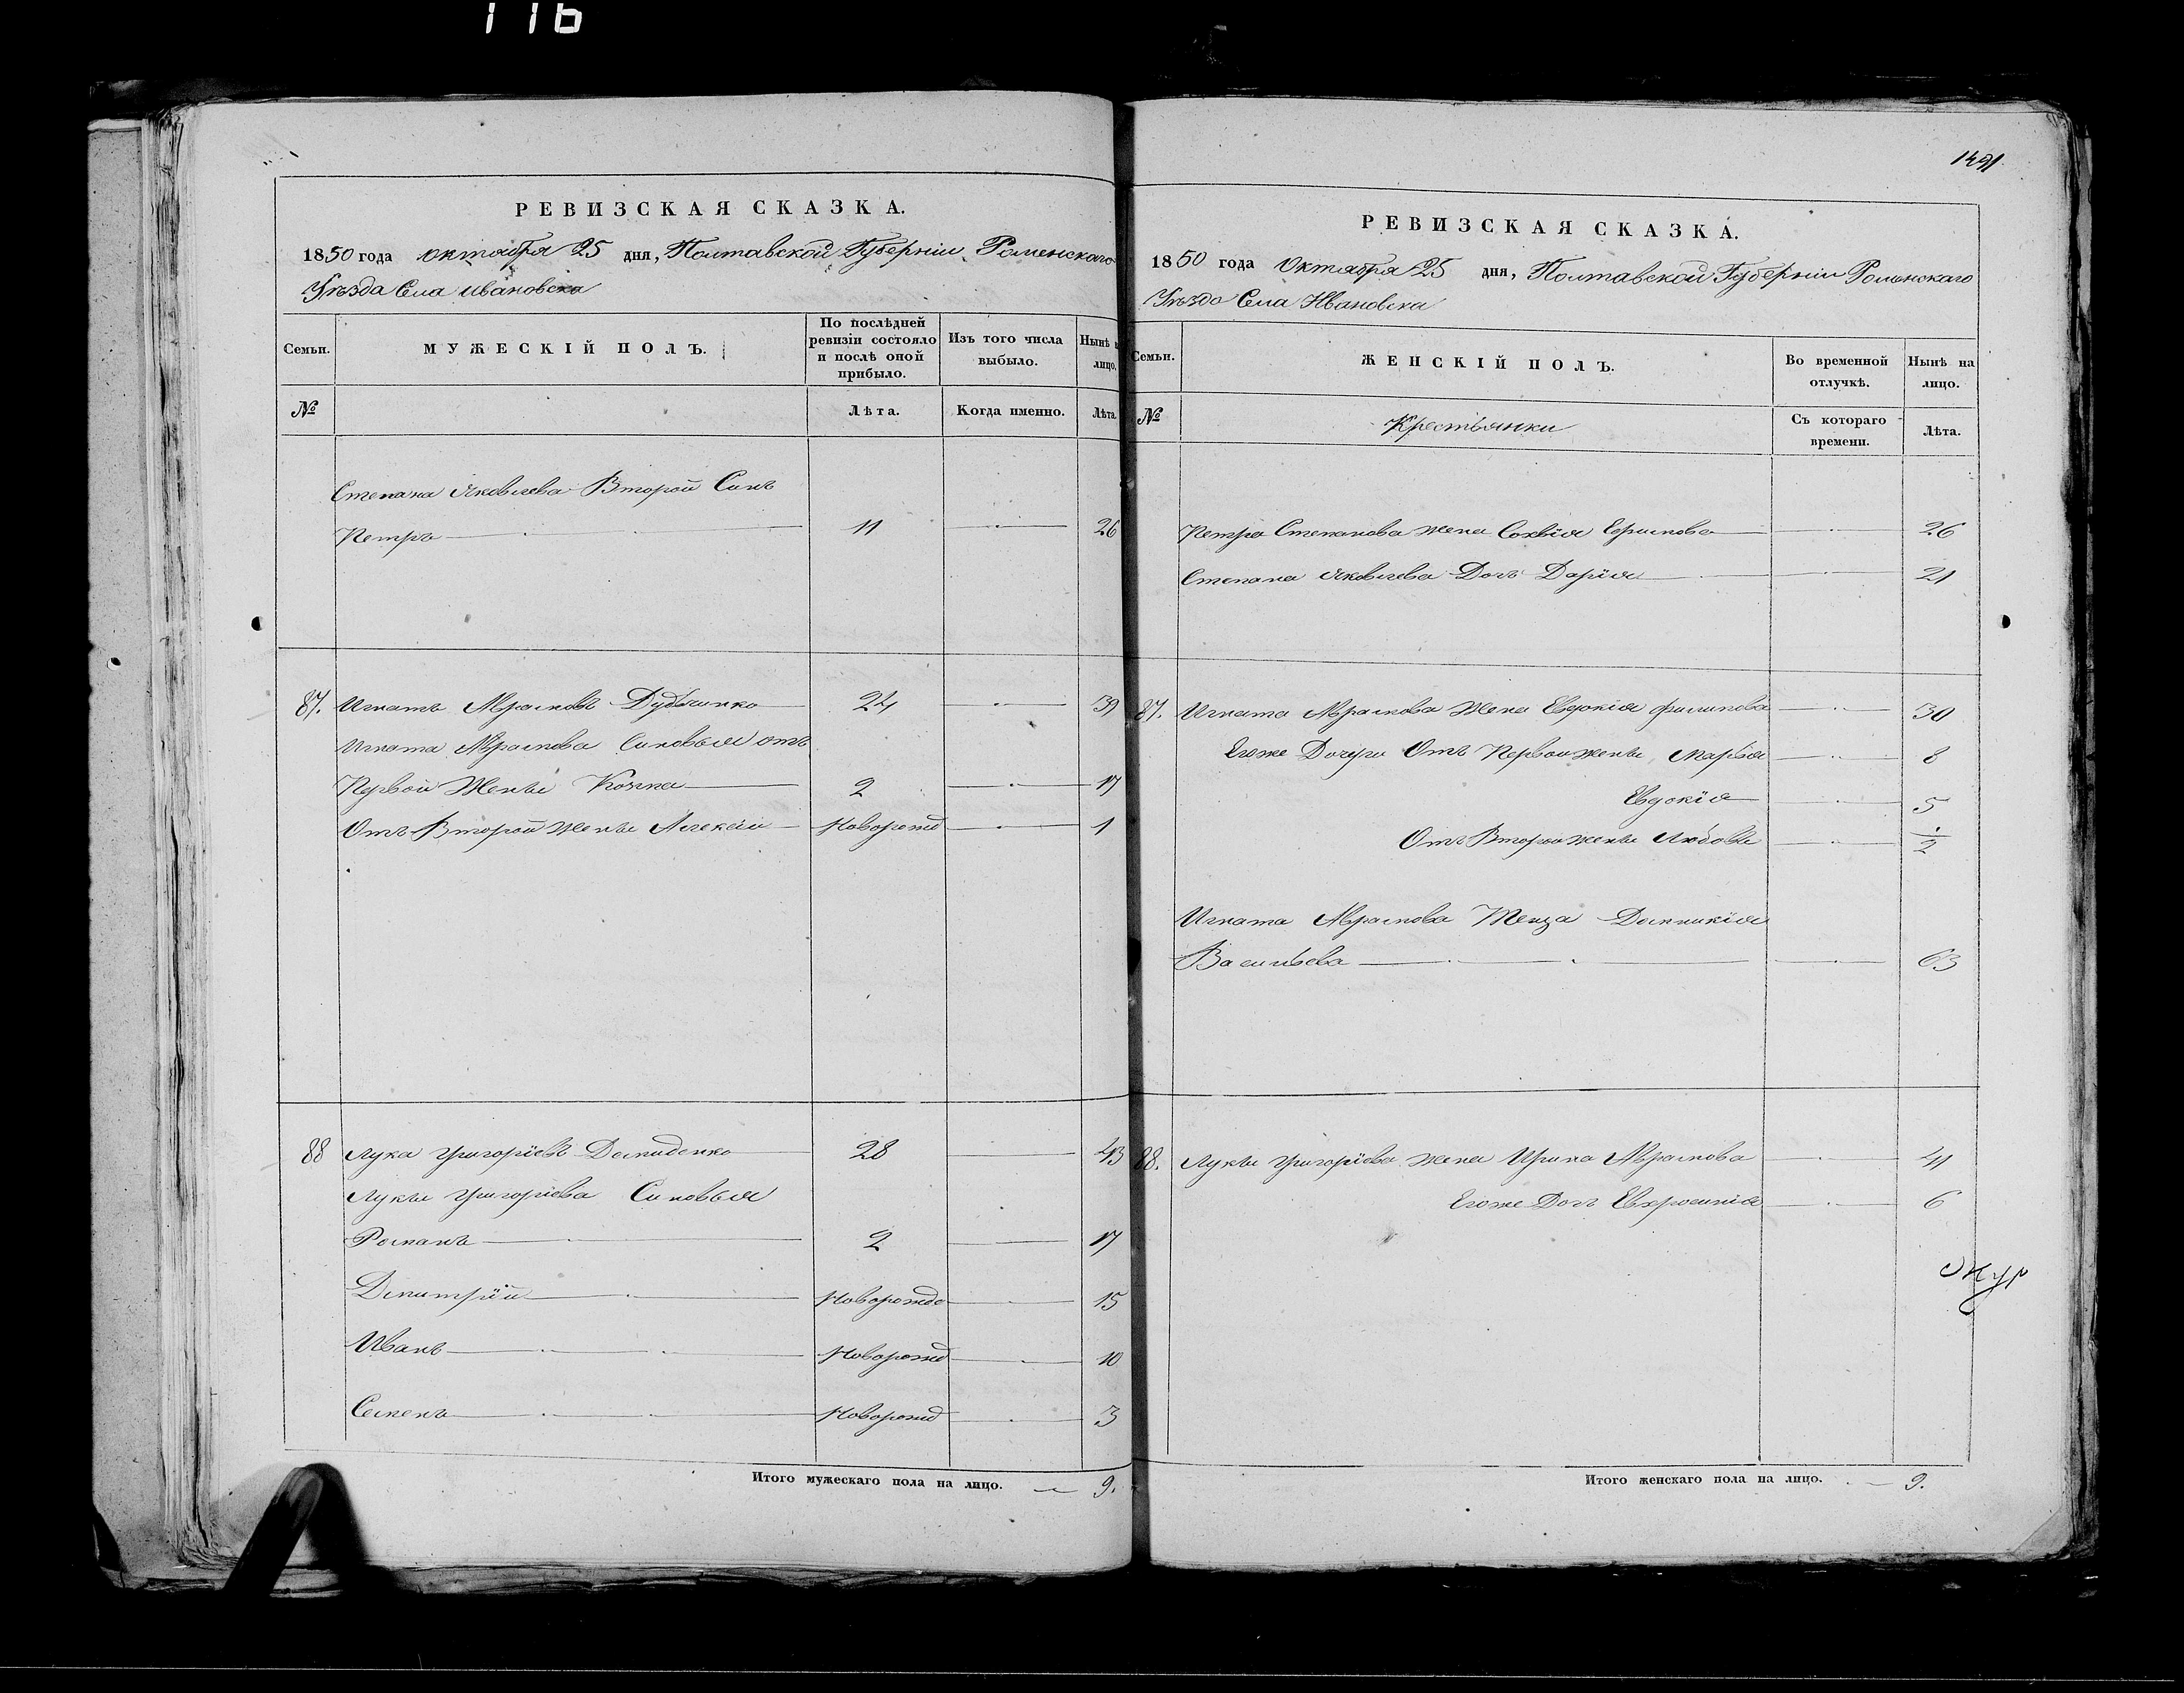 116
РЕВИЗСКАЯ СКАЗКА.
1850 года октября 25 дня, Полтавской Губернiи Роменскаго
Уѣзда Села Ивановска
Семьи.
МУЖЕСКІЙ ПОЛЪ.
По послѣдней ревизіи состояло и послѣ оной прибыло.
Изъ того числа выбыло.
Нынѣ н лицо.
№
Лѣта.
Когда именно.
Лѣта.
Степана Яковлева Второй Синъ
Петръ 11 26
87. Игнатъ Аврамовъ 24 39
Игната Аврамова Синовья отъ
Первой Жены Козма 2 17
Отъ Второй жены Алексій Новорожд 1
88 Лука Григоріевъ Демиденко 28 43
Луки Григоріева Синовья
Романъ 2 17
Димитрій Новорожде 15
Иванъ Новорожд 10
Семенъ Новорожд 3
Итого мужескаго пола на лицо. 9.
1491
РЕВИЗСКАЯ СКАЗКА.
1850 года Октября 25 дня, Полтавской Губерніи Роменскаго
Уѣзда Села Ивановска
Семьи.
ЖЕНСКІЙ ПОЛЪ.
Во временной отлучкѣ.
Нынѣ на лицо.
№
Крестьянки
Съ котораго времени.
Лѣта.
Петра Степанова жена Сохвія 26
Степана Яковлева Дочъ Дарія 21
87. Игната Аврамова Жена Евдокія Филипова 30
Егоже Дочери Отъ Первой жены Марья 8
Евдокія 5
Отъ Второй жены Любовь 1/2
Игната Аврамова Теща Домникія
Васильева 63
88. Луки Григоріева жена Ирина Аврамова 41
Егоже Дочъ Евхросинія 6
Итого женскаго пола на лицо. 9.